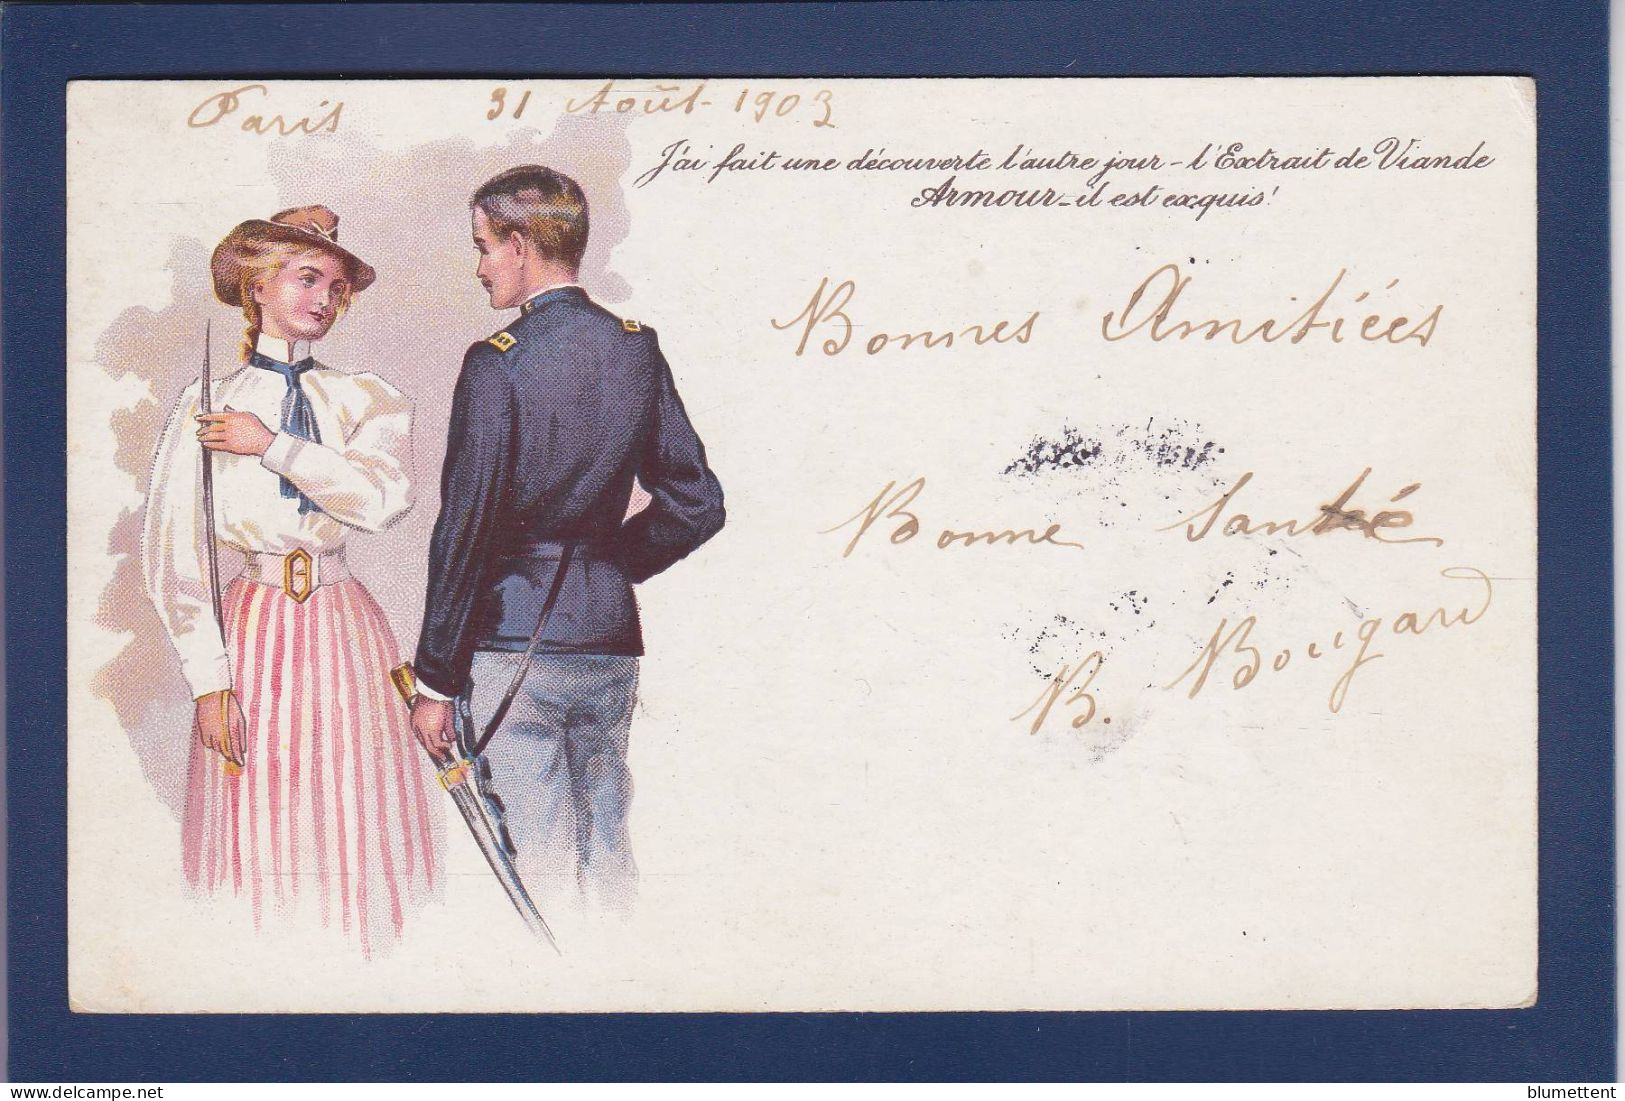 Paris 31 Août 1903
J'ai fait une découverte l'autre jour - l'Extrait de Viande
Armour - il est exquis!
Bonnes Amitiées
Bonne Santé
B. Bougard
blumettent